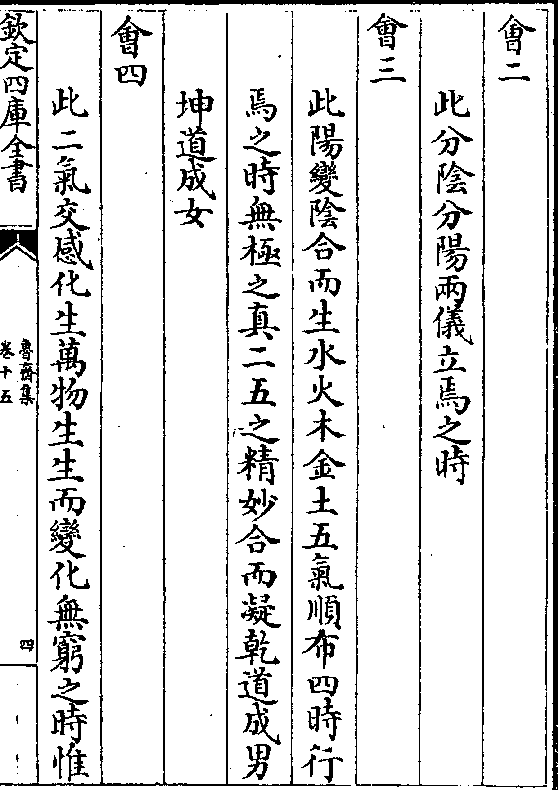 會二
此分陰分陽兩儀立焉之時
會三
此陽變陰合而生水火木金土五氣順布四時行
焉之時無極之真二五之精妙合而凝乾道成男
坤道成女
會四
此二氣交感化生萬物生生而變化無窮之時惟
欽定四庫全書
魯齋集
卷十五
四